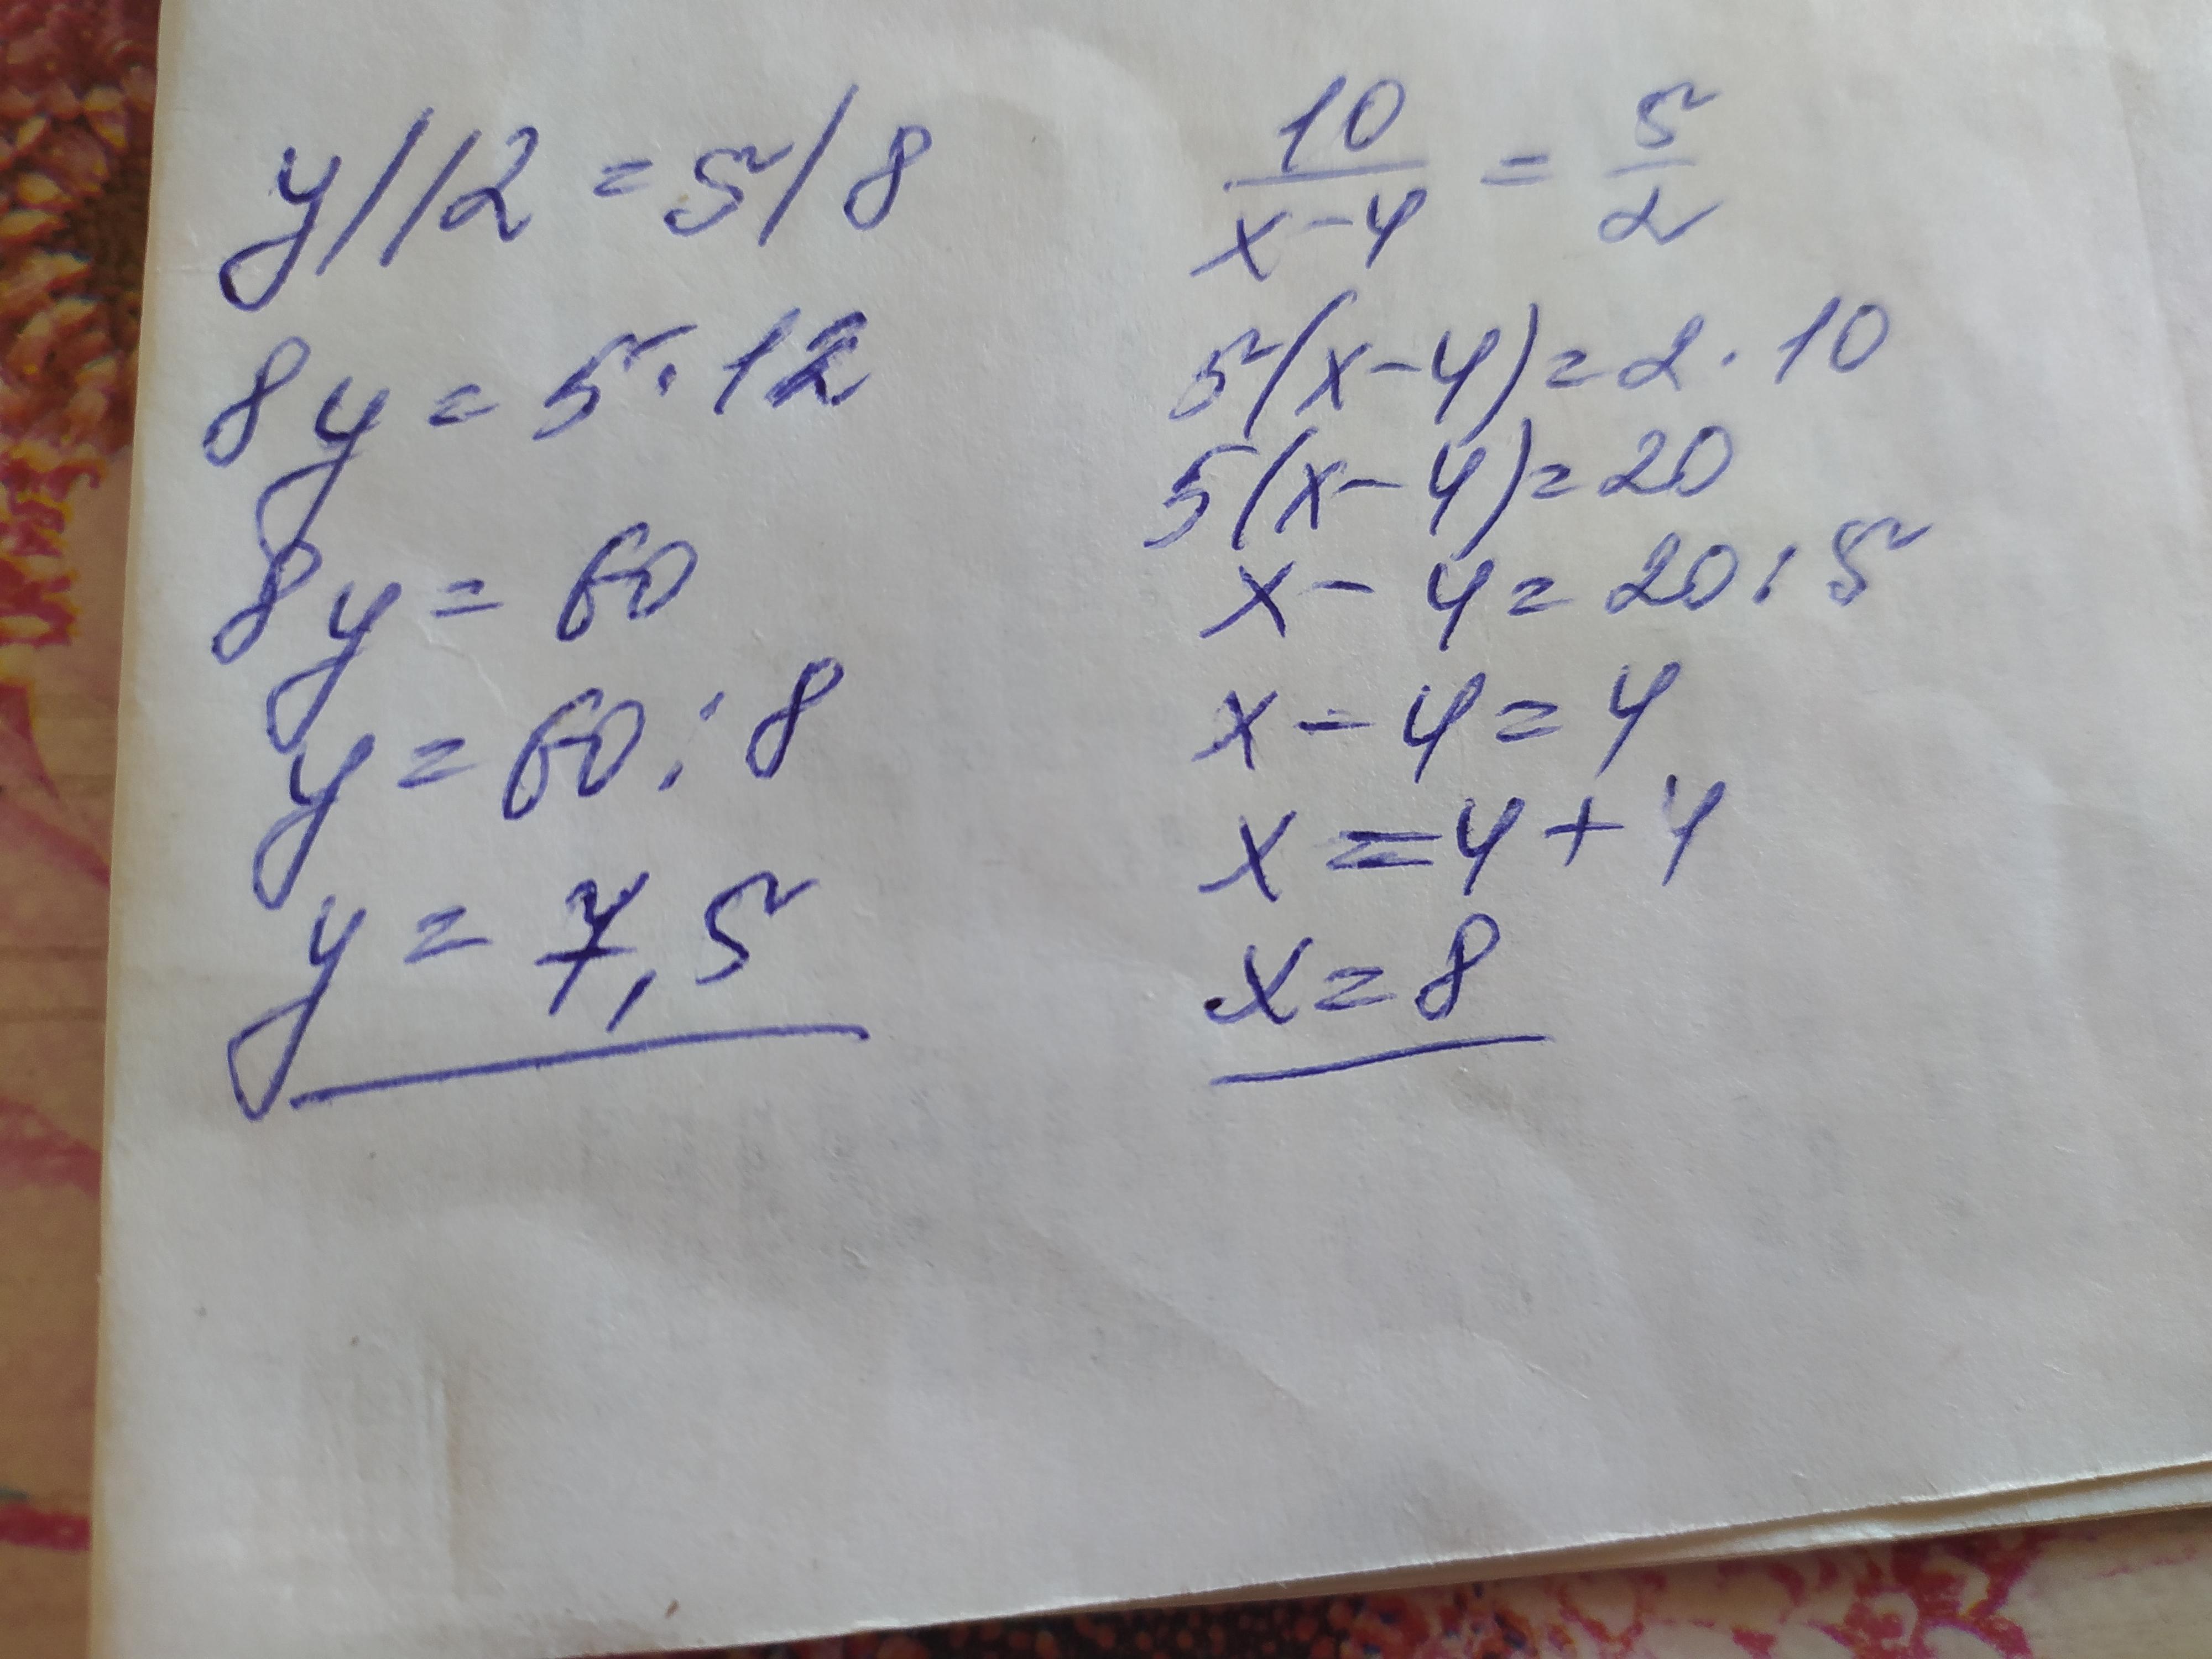 y/12 = 5/8
8y = 5·12
8y = 60
y = 60 : 8
y = 7,5
10/(x-4) = 5/2
5(x-4) = 2·10
5(x-4) = 20
x-4 = 20:5
x-4 = 4
x = 4+4
x = 8